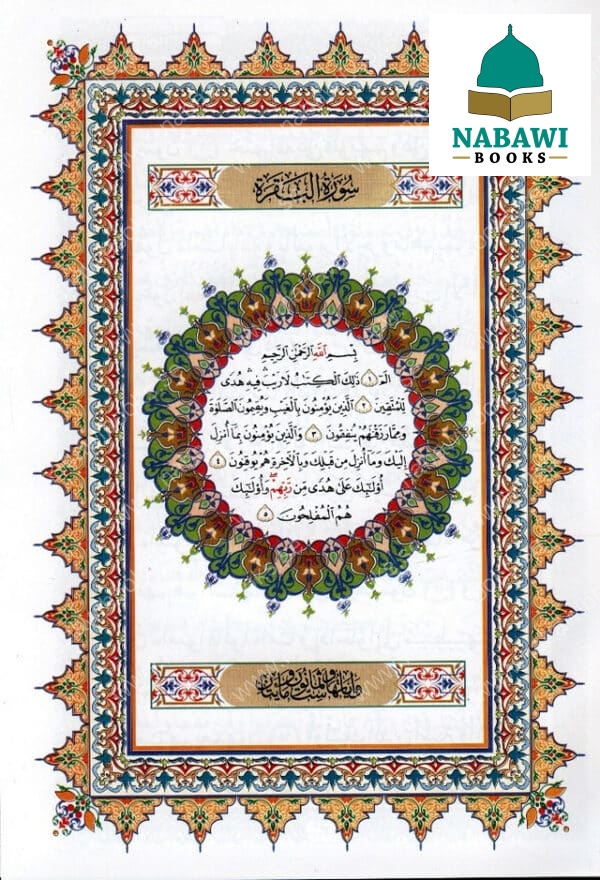 NABAWI
BOOKS
سُورَةُ الْبَقَرَةِ
بِسْمِ اللَّهِ الرَّحْمَٰنِ الرَّحِيمِ
الٓمٓ ١ ذَٰلِكَ الْكِتَٰبُ لَا رَيْبَ ۛ فِيهِ ۛ هُدًى
لِّلْمُتَّقِينَ ٢ الَّذِينَ يُؤْمِنُونَ بِالْغَيْبِ وَيُقِيمُونَ الصَّلَوٰةَ
وَمِمَّا رَزَقْنَٰهُمْ يُنفِقُونَ ٣ وَالَّذِينَ يُؤْمِنُونَ بِمَا أُنزِلَ
إِلَيْكَ وَمَا أُنزِلَ مِن قَبْلِكَ وَبِالْآخِرَةِ هُمْ يُوقِنُونَ ٤
أُولَٰئِكَ عَلَىٰ هُدًى مِّن رَّبِّهِمْ ۖ وَأُولَٰئِكَ
هُمُ الْمُفْلِحُونَ ٥